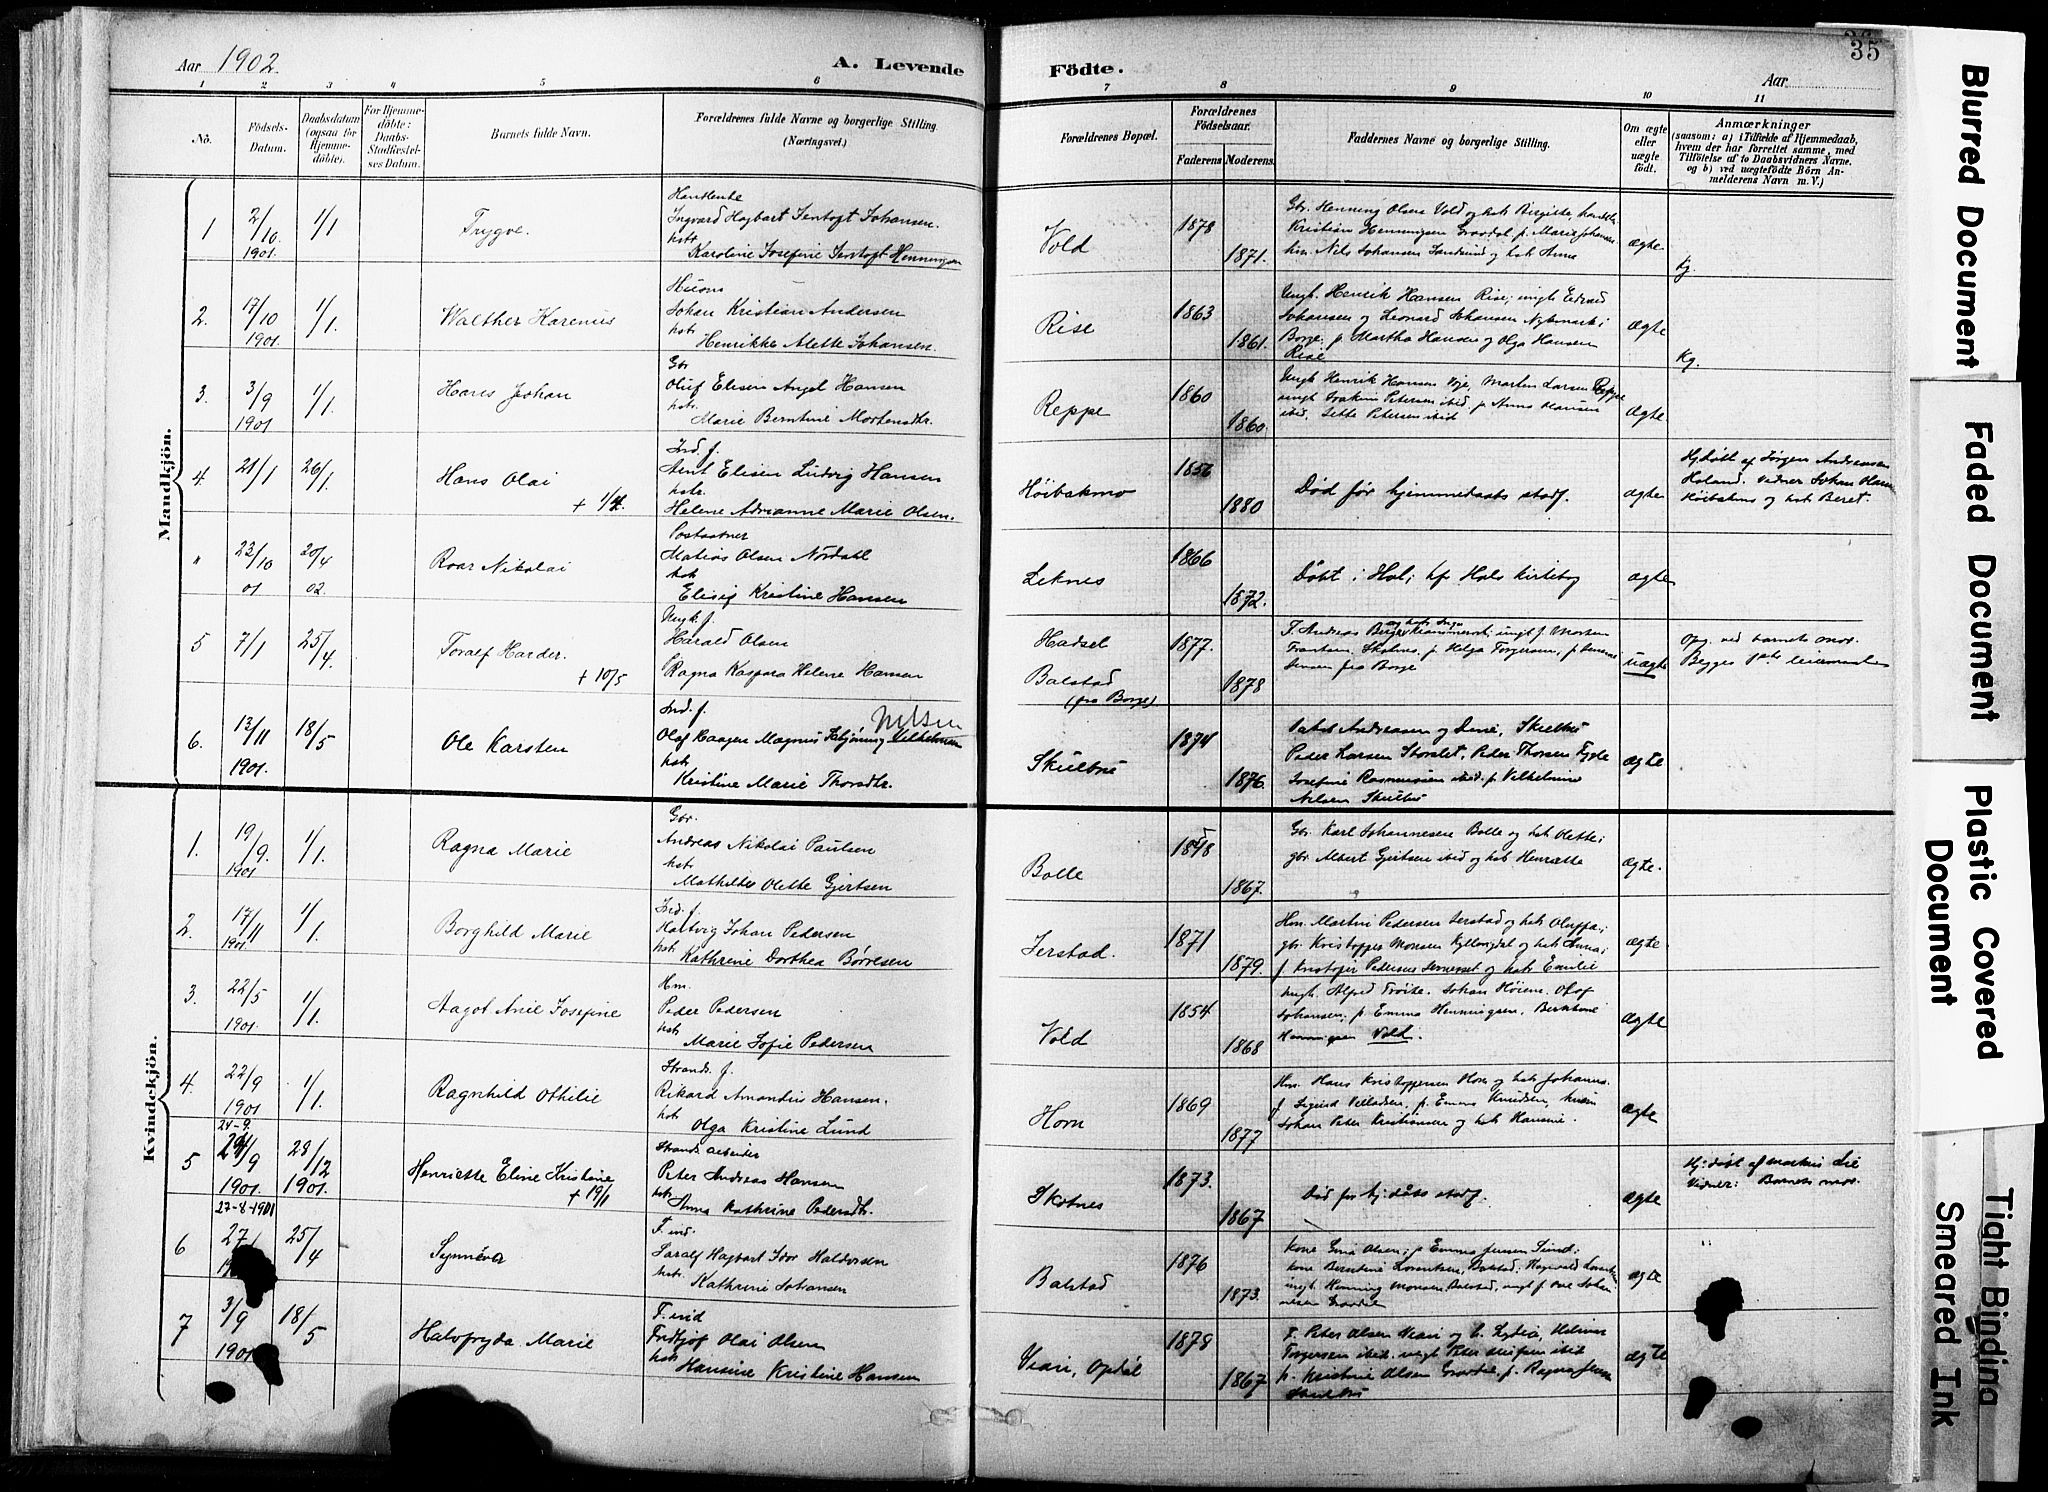 Aar 1902.
A. Levende Födte.
Aar
35
1 2 3 4 5 6 7 8 9 10 11
No.
Födsels-Datum.
Daabsdatum (ogsaa for Hjemmedöbte).
For Hjemmedöbte: Daabs-Stadfæstelses Datum.
Barnets fulde Navn.
Forældrenes fulde Navne og borgerlige Stilling.
(Næringsvei.)
Forældrenes Bopæl.
Forældrenes Födselsaar.
Faderens Moderens.
Faddernes Navne og borgerlige Stilling.
Om ægte eller uægte födt.
Anmærkninger
(saasom: a) i Tilfælde af Hjemmedaab, hvem der har forrettet samme, med Tilföielse af to Daabsvidners Navne, og b) ved uægtefödte Börn Anmelderens Navn m. V.)
Mandkjön.
1 2/10 1901. 1/1 Trygve.
Handlende
Ingvard Hagbart Jentoft Johansen.
hstr
Karoline Josefine Jentoft Henningsen
Vold 1878 1871.
Gbr. Henning Olsen Vold og hst. Birgitte,
Kristian Henningsen Gravdal, p. Marie Johansen
hm. Nils Johansen Sandsund og hst. Anna
ægte
Kg.
2. 17/10 1901. 1/1. Walther Karenius
Husm
Johan Kristian Andersen
hst
Henrikke Alette Johansen.
Rise 1863 1861.
Ungk. Henrik Hansen Rise; ungk. Edvard
Johansen og Leonard Johansen Nykmark i
Borge. p. Martha Hansen og Olga Hansen
Rise
ægte
Kg.
3. 3/9 1901 1/1. Hans Johan
Gbr
Oluf Elisen Angel Hansen
hstr.
Marie Berntine Mortensdtr.
Reppe 1860 1860.
Ungk Henrik Hansen Vje, Morten Larsen Reppe
ungk Joakim Petersen ibid. p. Anna Hansen
ibid. Jette Petersen ibid
ægte
4. 21/1 26/1. Hans Olai + 1/4.
Ind. f.
Arnt Elisen Ludvig Hansen
hstr.
Helene Adrianne Marie Olsen.
Höibakmo 1856 1880
Död för hjemmedaabs stadf.
ægte
Hj.döbt af Jörgen Andreassen
Holand. Vidner Johan Hansen
Höibakmo og hst. Beret.
" 23/10 01 20/4 02. Roar Nikolai
Postaabner
Matias Olsen Nordahl
hst
Elisig Kristine Hansen
Leknes 1866 1872.
Döbt i Hol; kfr Hols kirkebog
ægte
5 7/1 25/4. Toralf Harder. + 10/5
Ungk. f.
Harald Olsen
Ragna Kaspara Helene Hansen
Hadsel
Balstad
(fra Borge)
1877. 1878
ungk f. Morten
Frantsen. Skotnes, p. Helga Torgersen, p.
Jensen fra Borge
uægte
Opg. ved barnets mor.
Begges 1ste leiermaal
6. 13/11 1901. 18/5 Ole Karsten
Ind. f. Nilsen
Olaf Haagen Magnus Vilhelmsen
hst
Kristine Marie Thorsdtr.
Skulbru 1874 1876.
Andreasen og Skulbru
Peder Larsen Storslet, Peder Thorsen Fygle
Josefine Rasmussen ibid. p. Vilhelmine
Nilsen Skulbru
ægte
Kvindekjön.
1. 19/9. 1901 1/1. Ragna Marie
Gbr.
Andreas Nikolai Paulsen
hst.
Mathilde Olette Gjertsen
Bolle 1848 1867.
Gbr. Karl Johannesen Bolle og hst Olette;
gbr. Albert Gjertsen ibid og hst Henriette
ægte.
2. 17/11 1901 1/1. Borghild Marie
Ind. f.
Hartvig Johan Pedersen
hst.
Kathrine Dorthea Börresen
Jerstad. 1871 1879.
Hm. Martin Pedersen Jerstad og hst. Oluffa;
gbr. Kristoffer Monsen Kyllingdal og hst Anna;
f. Kristofer Pedersen og hst. Emilie
ægte
3. 22/5 1901. 1/1. Aagot Anie Josefine
Hm.
Peder Pedersen
hst.
Marie Sofie Pedersen
Vold 1854 1868
ungk. Alfred Troite. Johan Höiene. Olof
Johansen; p. Emma Henningsen. Berntine
Henningsen Vold.
ægte
4. 22/9 1901 1/1. Ragnhild Othilie
Strands. f.
Rikard Amandus Hansen.
hst.
Olga Kristine Lund
Horn 1869 1877
Hm. Hans Kristoffersen Horn og hst. Johanna.
f. Sigurd Villadsen, p. Emma Knudsen, husm
Johan Peter Kristiansen og hst Hansine.
ægte
24-9.
5 24/9 1901. 28/12 1901. Henriette Eline Kristine + 19/1
Strands. arbeider
Peter Andreas Hansen
hst.
Anna Kathrine Pedersdtr.
Skotnes 1873. 1867
Död för hj: döbts stadf.
ægte
Hj: döbt af Markus Lie
Vidner: Barnets mor.
27-8-1901
6 27/ 25/4 Synnöva
F. ind.
Taralf Hagbart Idor Haldorsen
hst.
Kathrine Johansen
Balstad 1876 1873.
Kone Gina Olsen; p. Emma Jensen Sund;
kone Berntine Lorentsen, Balstad. Hagvald Lorentsen
ungk. Henning Monsen Balstad, ungk f. Ove Johan-
nesen Gravdal
ægte
7 3/9 1901 18/5 Halvfryda Marie
F. ind
Fridtjof Olai Olsen
hst.
Hansine Kristine Hansen
Veari, Opdöl 1878 1867
F. Peter Olsen Veari og h. Lydia, Helmer
Torgersen ibid. ungk Peter ibid
p. Kristine Olsen Gravdal, p. Ragna Jensen
Skulbru
ægte
Blurred Document
Faded Document
Plastic Covered Document
Tight Binding
Smeared Ink